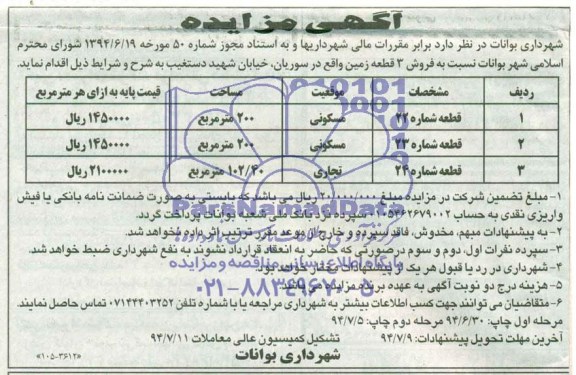 آگهی مزایده
شهرداری بوانات در نظر دارد برابر مقررات مالی شهرداریها و به استناد مجوز شماره ۵۰ مورخه ۱۳۹۴/۶/۱۹ شورای محترم
اسلامی شهر بوانات نسبت به فروش ۳ قطعه زمین واقع در سوریان، خیابان شهید دستغیب به شرح و شرایط ذیل اقدام نماید.
ردیف مشخصات موقعیت مساحت قیمت پایه به ازای هر مترمربع
۱ قطعه شماره ۲۲ مسکونی ۲۰۰ مترمربع ۱۴۵۰۰۰۰ ریال
۲ قطعه شماره ۲۳ مسکونی ۲۰۰ مترمربع ۱۴۵۰۰۰۰ ریال
۳ قطعه شماره ۲۴ تجاری ۱۰۲/۴۰ مترمربع ۲۱۰۰۰۰۰ ریال
۱- مبلغ تضمین شرکت در مزایده مبلغ ۲۰/۰۰۰/۰۰۰ ریال می باشد که بایستی به صورت ضمانت نامه بانکی یا فیش
واریزی نقدی به حساب ۰۱۰۵۴۶۲۶۷۹۰۰۲ سپرده نزد بانک ملی شعبه بوانات پرداخت گردد.
۲- به پیشنهادات مبهم، مخدوش، فاقد سپرده و خارج از موعد مقرر ترتیب اثر داده نخواهد شد.
۳- سپرده نفرات اول، دوم و سوم در صورتی که حاضر به انعقاد قرارداد نشوند به نفع شهرداری ضبط خواهد شد.
۴- شهرداری در رد یا قبول هر یک از پیشنهادات مختار خواهد بود.
۵- هزینه درج دو نوبت آگهی به عهده برنده مزایده می باشد.
۶- متقاضیان می توانند جهت کسب اطلاعات بیشتر به شهرداری مراجعه یا با شماره تلفن ۰۷۱۴۴۴۰۳۲۵۲ تماس حاصل نمایند.
مرحله اول چاپ: ۹۴/۶/۳۰ مرحله دوم چاپ: ۹۴/۷/۵
آخرین مهلت تحویل پیشنهادات: ۹۴/۷/۹ تشکیل کمیسیون عالی معاملات ۹۴/۷/۱۱
شهرداری بوانات
«۱۰۵-۳۶۱۲»
ParsNamadData
پایگاه اطلاع رسانی مناقصه و مزایده
۰۲۱-۸۸۳۴۹۶۷۰-۵